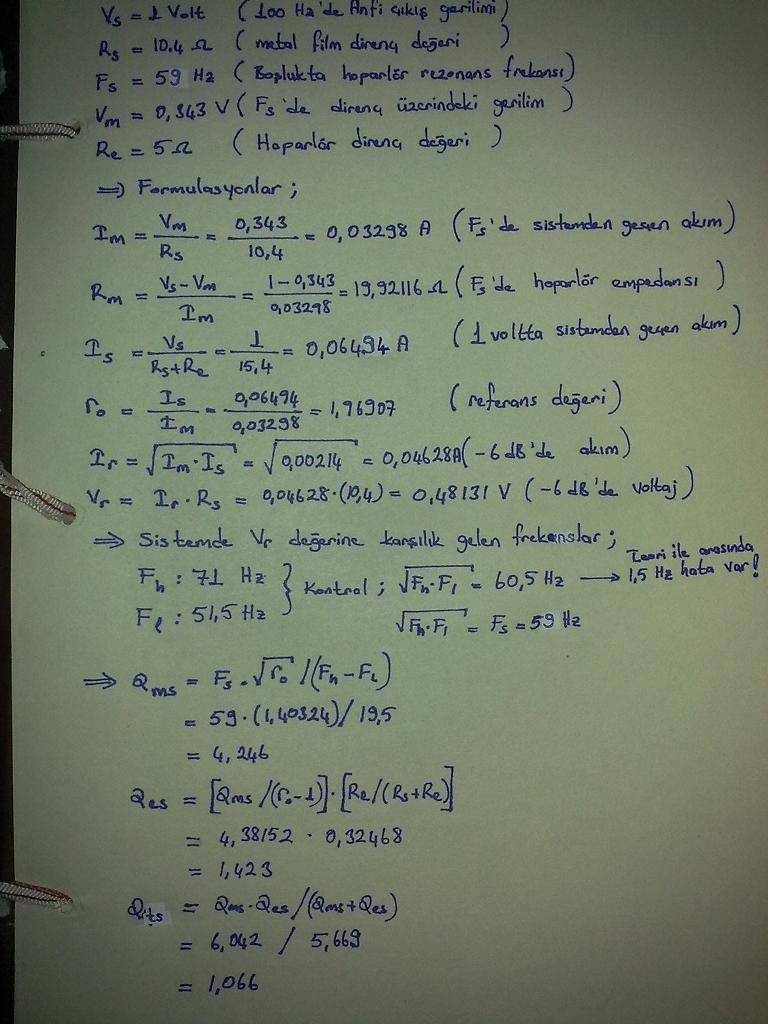 Vs = 1 Volt ( 100 Hz'de Anfi çıkış gerilimi )
Rs = 10.4 Ω ( metal film direnç değeri )
Fs = 59 Hz ( Boşlukta hoparlör rezonans frekansı )
Vm = 0,343 V ( Fs'de direnç üzerindeki gerilim )
Re = 5 Ω ( Hoparlör direnç değeri )
⇒ Formulasyonlar ;
Im = Vm / Rs = 0,343 / 10,4 = 0,03298 A ( Fs'de sistemden geçen akım )
Rm = Vs - Vm / Im = 1 - 0,343 / 0,03298 = 19,92116 Ω ( Fs'de hoparlör empedansı )
Is = Vs / Rs + Re = 1 / 15,4 = 0,06494 A ( 1 voltta sistemden geçen akım )
ro = Is / Im = 0,06494 / 0,03298 = 1,96907 ( referans değeri )
Ir = √Im · Is = √0,00214 = 0,04628A ( -6 dB'de akım )
Vr = Ir · Rs = 0,04628 · (10,4) = 0,48131 V ( -6 dB'de voltaj )
⇒ Sistemde Vr değerine karşılık gelen frekanslar ;
Fh : 71 Hz } Kontrol ; √Fh · Fl = 60,5 Hz → Teori ile arasında 1,5 Hz hata var !
Fl : 51,5 Hz √Fh · Fl = Fs = 59 Hz
⇒ Qms = Fs · √ro / (Fh - FL)
= 59 · (1,40324) / 19,5
= 4,246
Qes = [Qms / (ro - 1)] · [Re / (Rs + Re)]
= 4,38152 · 0,32468
= 1,423
Qts = Qms · Qes / (Qms + Qes)
= 6,042 / 5,669
= 1,066